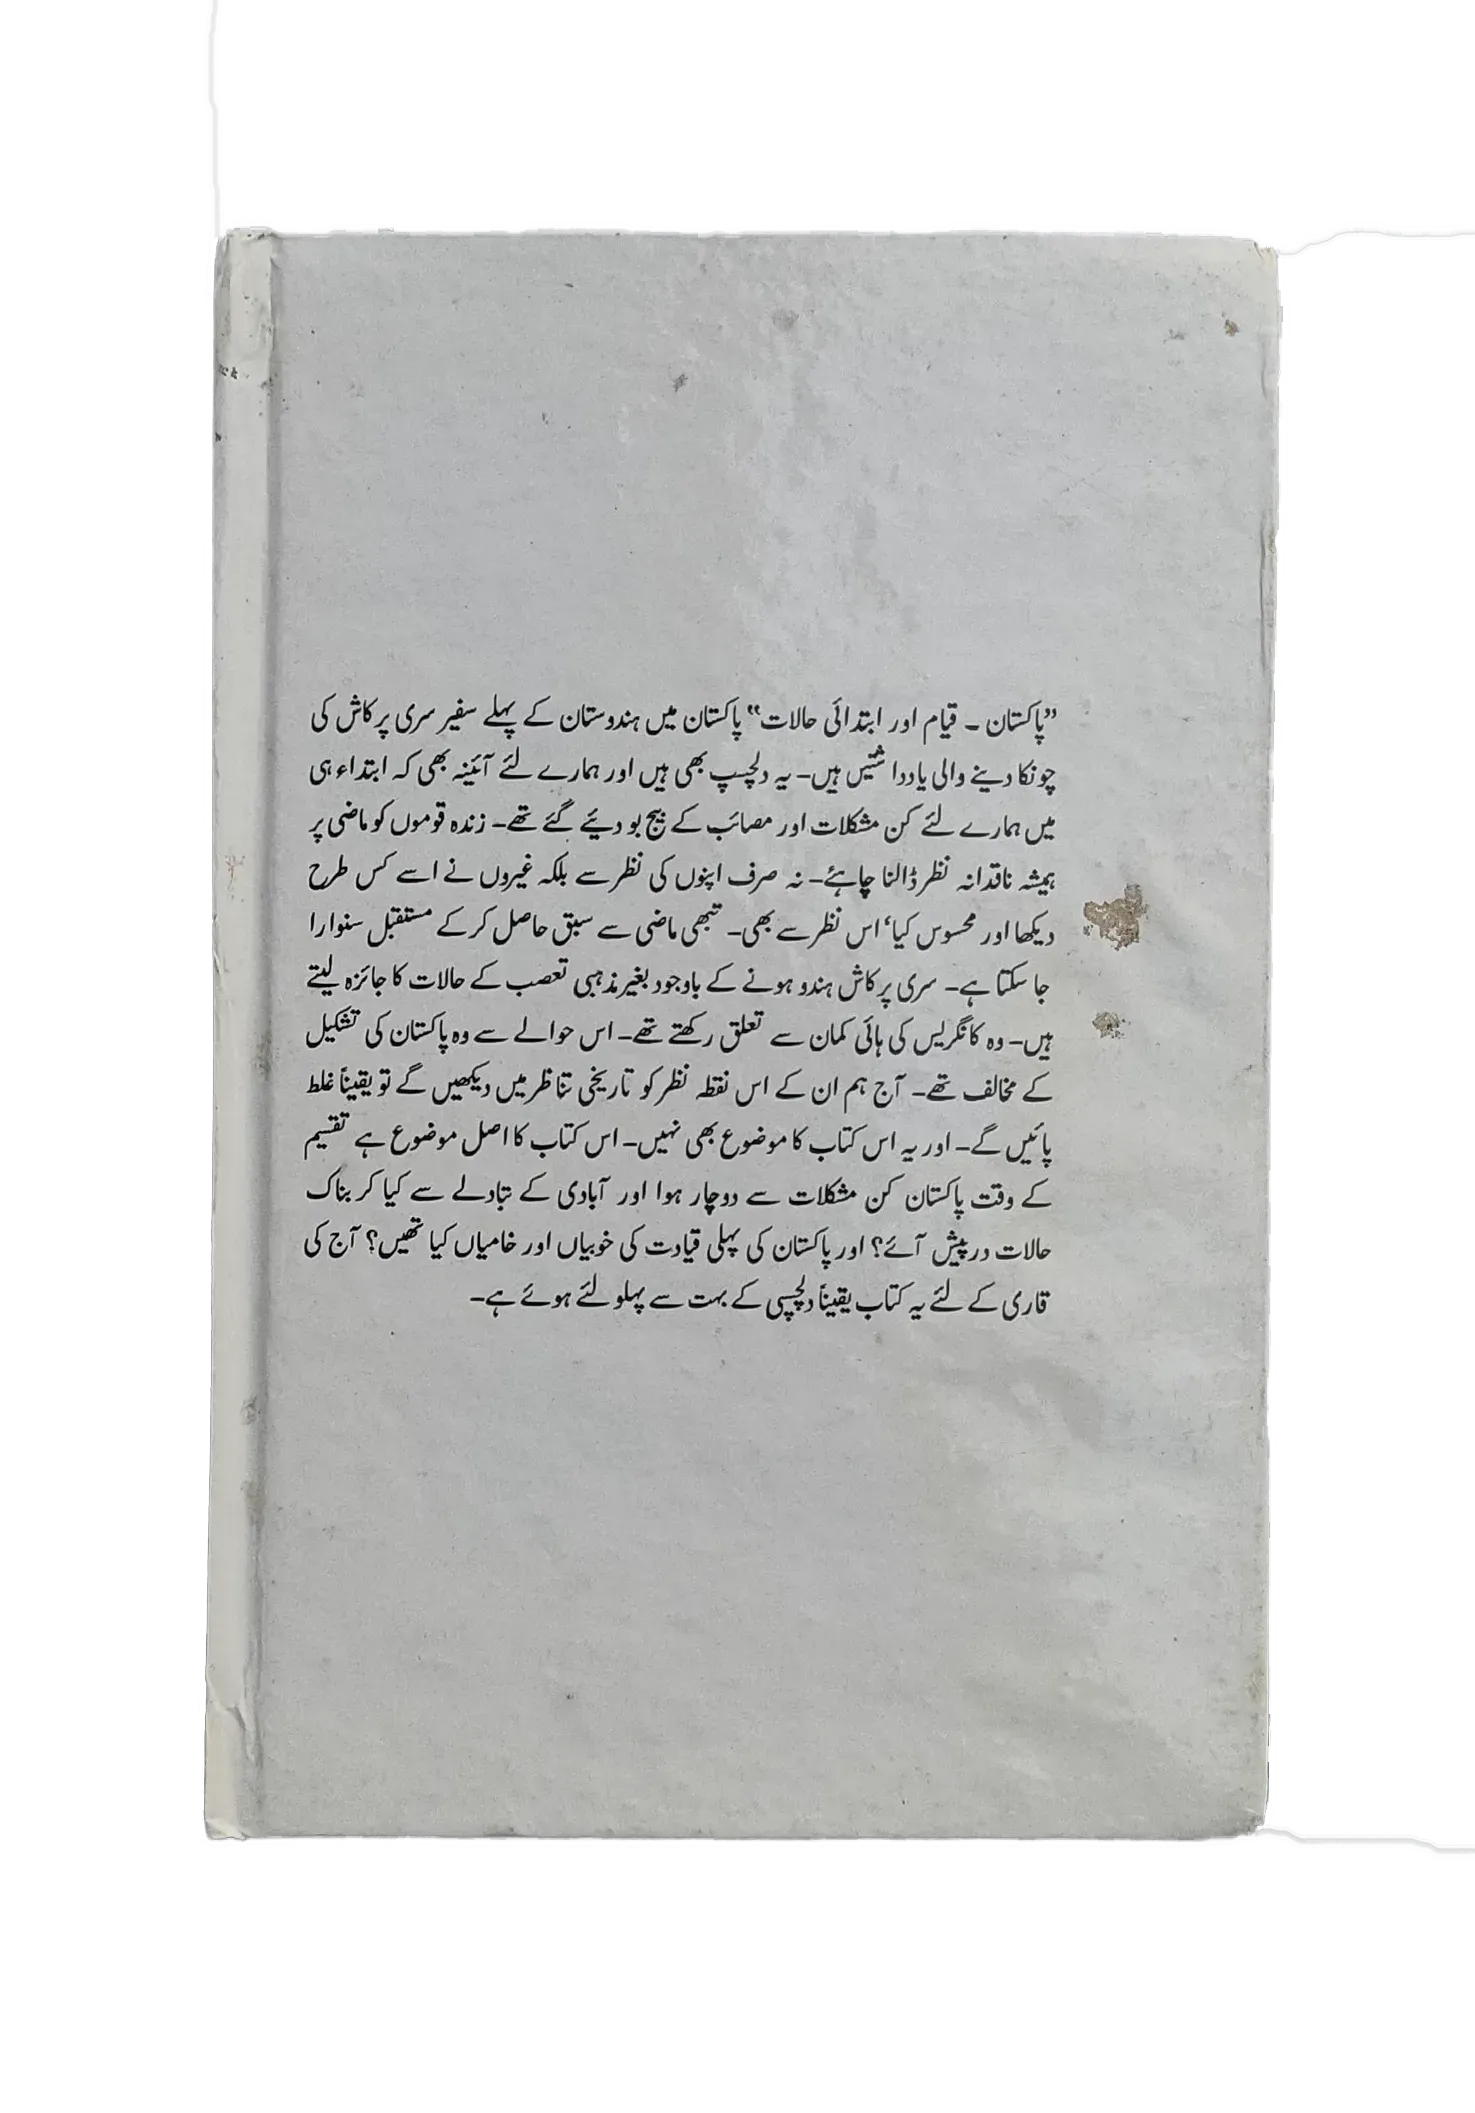 ”پاکستان ۔ قیام اور ابتدائی حالات“ پاکستان میں ہندوستان کے پہلے سفیر سری پرکاش کی
چونکا دینے والی یادداشتیں ہیں۔ یہ دلچسپ بھی ہیں اور ہمارے لئے آئینہ بھی کہ ابتداء ہی
میں ہمارے لئے کن مشکلات اور مصائب کے بیج بو دیئے گئے تھے۔ زندہ قوموں کو ماضی پر
ہمیشہ ناقدانہ نظر ڈالنا چاہئے۔ نہ صرف اپنوں کی نظر سے بلکہ غیروں نے اسے کس طرح
دیکھا اور محسوس کیا‘ اس نظر سے بھی۔ تبھی ماضی سے سبق حاصل کر کے مستقبل سنوارا
جا سکتا ہے۔ سری پرکاش ہندو ہونے کے باوجود بغیر مذہبی تعصب کے حالات کا جائزہ لیتے
ہیں۔ وہ کانگریس کی ہائی کمان سے تعلق رکھتے تھے۔ اس حوالے سے وہ پاکستان کی تشکیل
کے مخالف تھے۔ آج ہم ان کے اس نقطہ نظر کو تاریخی تناظر میں دیکھیں گے تو یقیناً غلط
پائیں گے۔ اور یہ اس کتاب کا موضوع بھی نہیں۔ اس کتاب کا اصل موضوع ہے تقسیم
کے وقت پاکستان کن مشکلات سے دوچار ہوا اور آبادی کے تبادلے سے کیا کربناک
حالات درپیش آئے؟ اور پاکستان کی پہلی قیادت کی خوبیاں اور خامیاں کیا تھیں؟ آج کی
قاری کے لئے یہ کتاب یقیناً دلچسپی کے بہت سے پہلو لئے ہوئے ہے۔